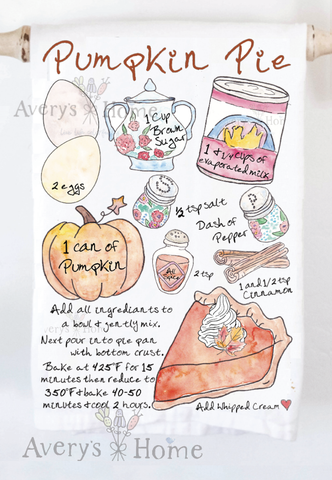 Pumpkin Pie
Avery's Home
1 Cup
Brown
Sugar
1 & 1/4 cups of
evaporated milk
2 eggs
1/2 tsp salt
Dash of
Pepper
1 can of
Pumpkin
All
Spice
2 tsp
1 and 1/2 tsp
Cinnamon
Add all ingrediants to
a bowl & gently mix.
Next pour into pie pan
with bottom crust.
Bake at 425°F for 15
minutes then reduce to
350°F & bake 40-50
minutes & cool 2 hours.
Add Whipped Cream
Avery's Home